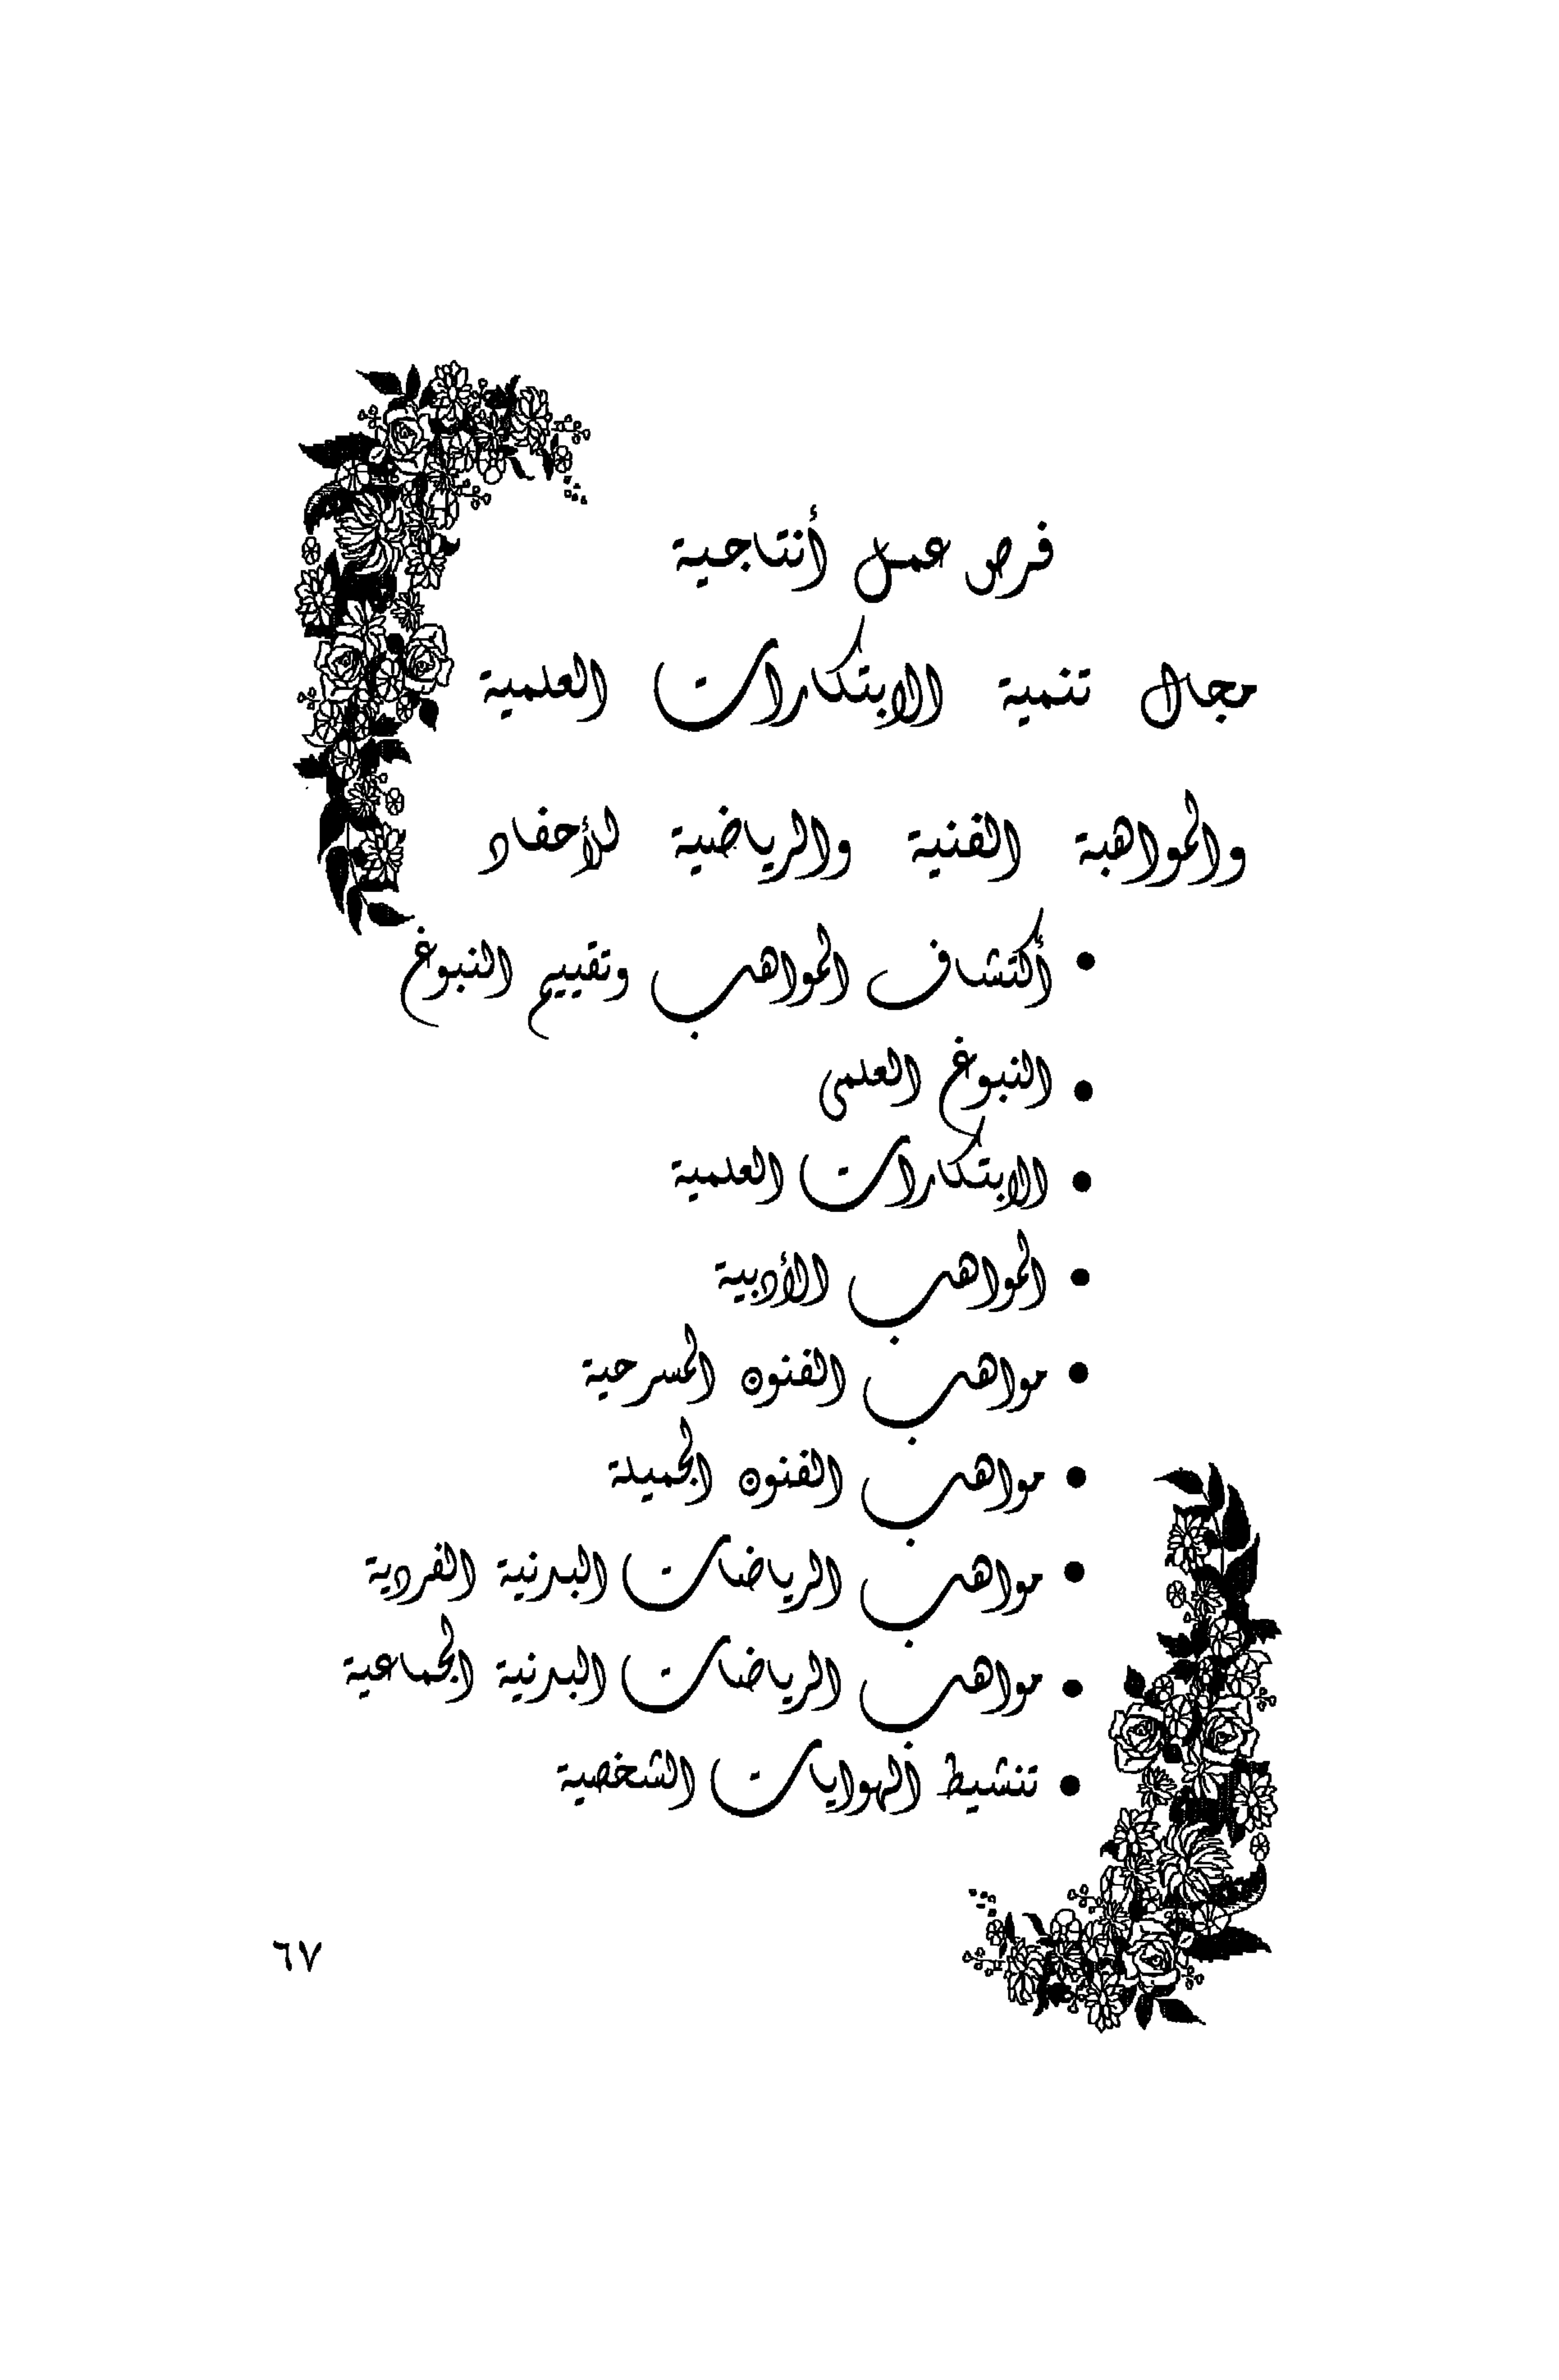 فرص عمل أنتاجية
مجال تنمية الابتكارات العلمية
والمواهبة الفنية والرياضية للأحفاد
• أكتشاف المواهب وتقييم النبوغ
• النبوغ العلمى
• الابتكارات العلمية
• المواهب الأدبية
• مواهب الفنون المسرحية
• مواهب الفنون الجميلة
• مواهب الرياضات البدنية الفردية
• مواهب الرياضات البدنية الجماعية
• تنشيط الهوايات الشخصية
٦٧